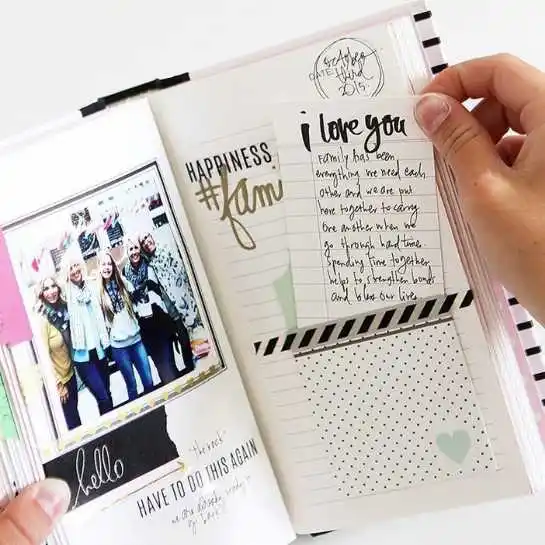 hello
"the rock"
HAVE TO DO THIS AGAIN
october
DATE
third
2015
HAPPINESS
#fami
i love you
Family has been
everything we need each
other and we are put
here together to carry
one another when we
go through bad time.
Spending time together
helps to strengthen bonds
and bless our lives